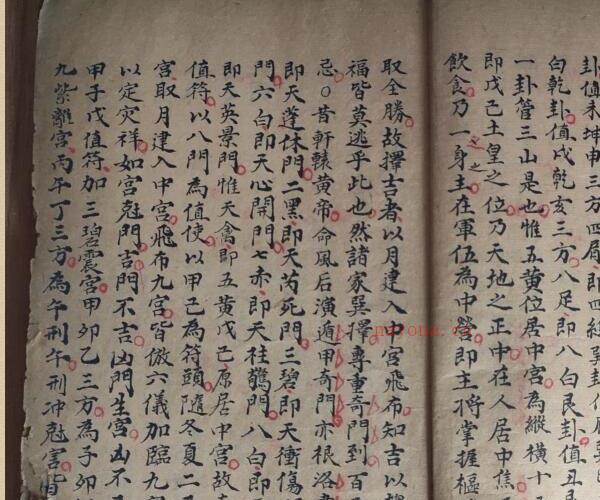 卦值未坤申三方四屑即四綠巽
白乾卦值戌乾亥三方八足即八白艮卦值丑
一卦管三山是也惟五黃位居中宮為縱橫十
即戊己土皇之位乃天地之正中在人居中焦
飲食乃一身之主在軍伍為中營即主將掌握樞
取全勝故擇吉者以月建入中宮飛布知吉以
福皆莫逃乎此也然諸家巽擇尊重奇門到百
忌○昔軒轅黃帝命風后演遁甲奇門亦根洛
即天蓬休門二黑即天芮死門三碧即天衝傷
門六白即天心開門七赤即天柱驚門八白即
即天英景門惟天禽即五黃戊己原居中宮故
值符以八門為值使以甲己為符頭隨冬夏二
宮取月建入中宮飛布九宮皆倣六儀加臨九
以定灾祥如宮尅門吉門不吉凶門生宮凶不
甲子戊值符加三碧震宮甲卯乙三方為子卯
九紫離宮丙午丁三方為午刑午刑冲尅害皆